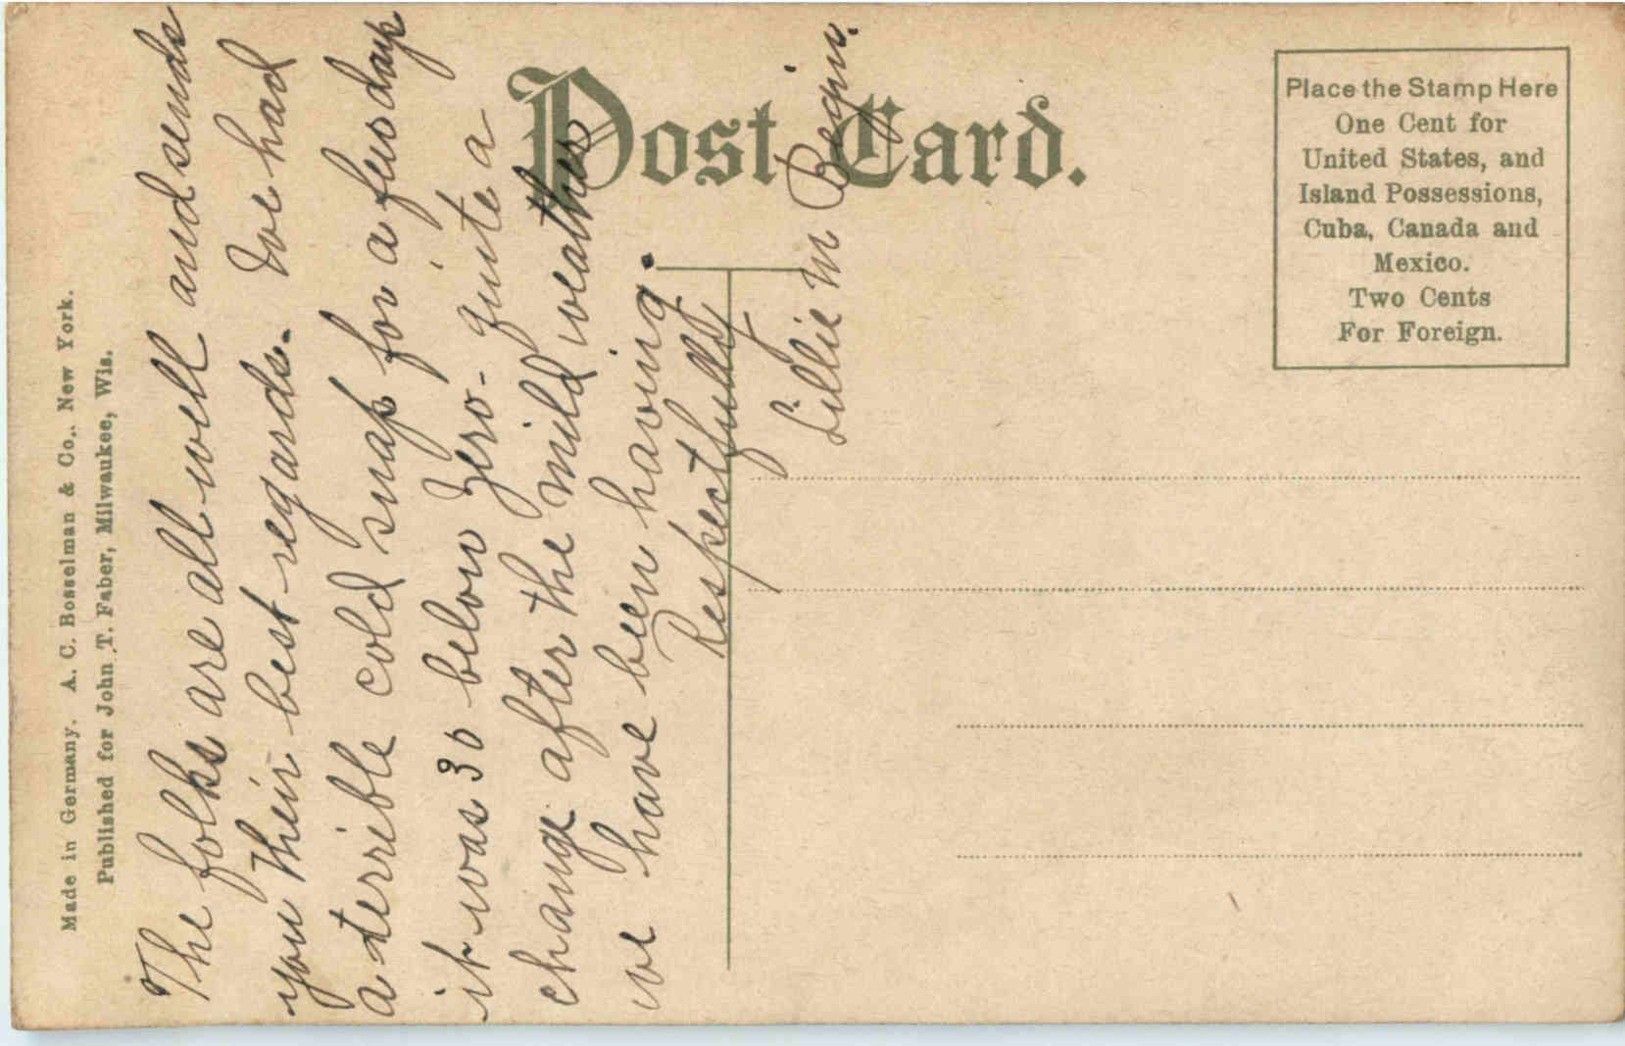 Post Card.
Place the Stamp Here
One Cent for
United States, and
Island Possessions,
Cuba, Canada and
Mexico.
Two Cents
For Foreign.
Made in Germany. A. C. Bosselman & Co., New York.
Published for John T. Faber, Milwaukee, Wis.
The folks are all well and sends
you their best regards. We had
a terrible cold snap for a few days
it was 30 below zero. quite a
change after the mild weather
we have been having.
Respectfully
Lillie M Begin.